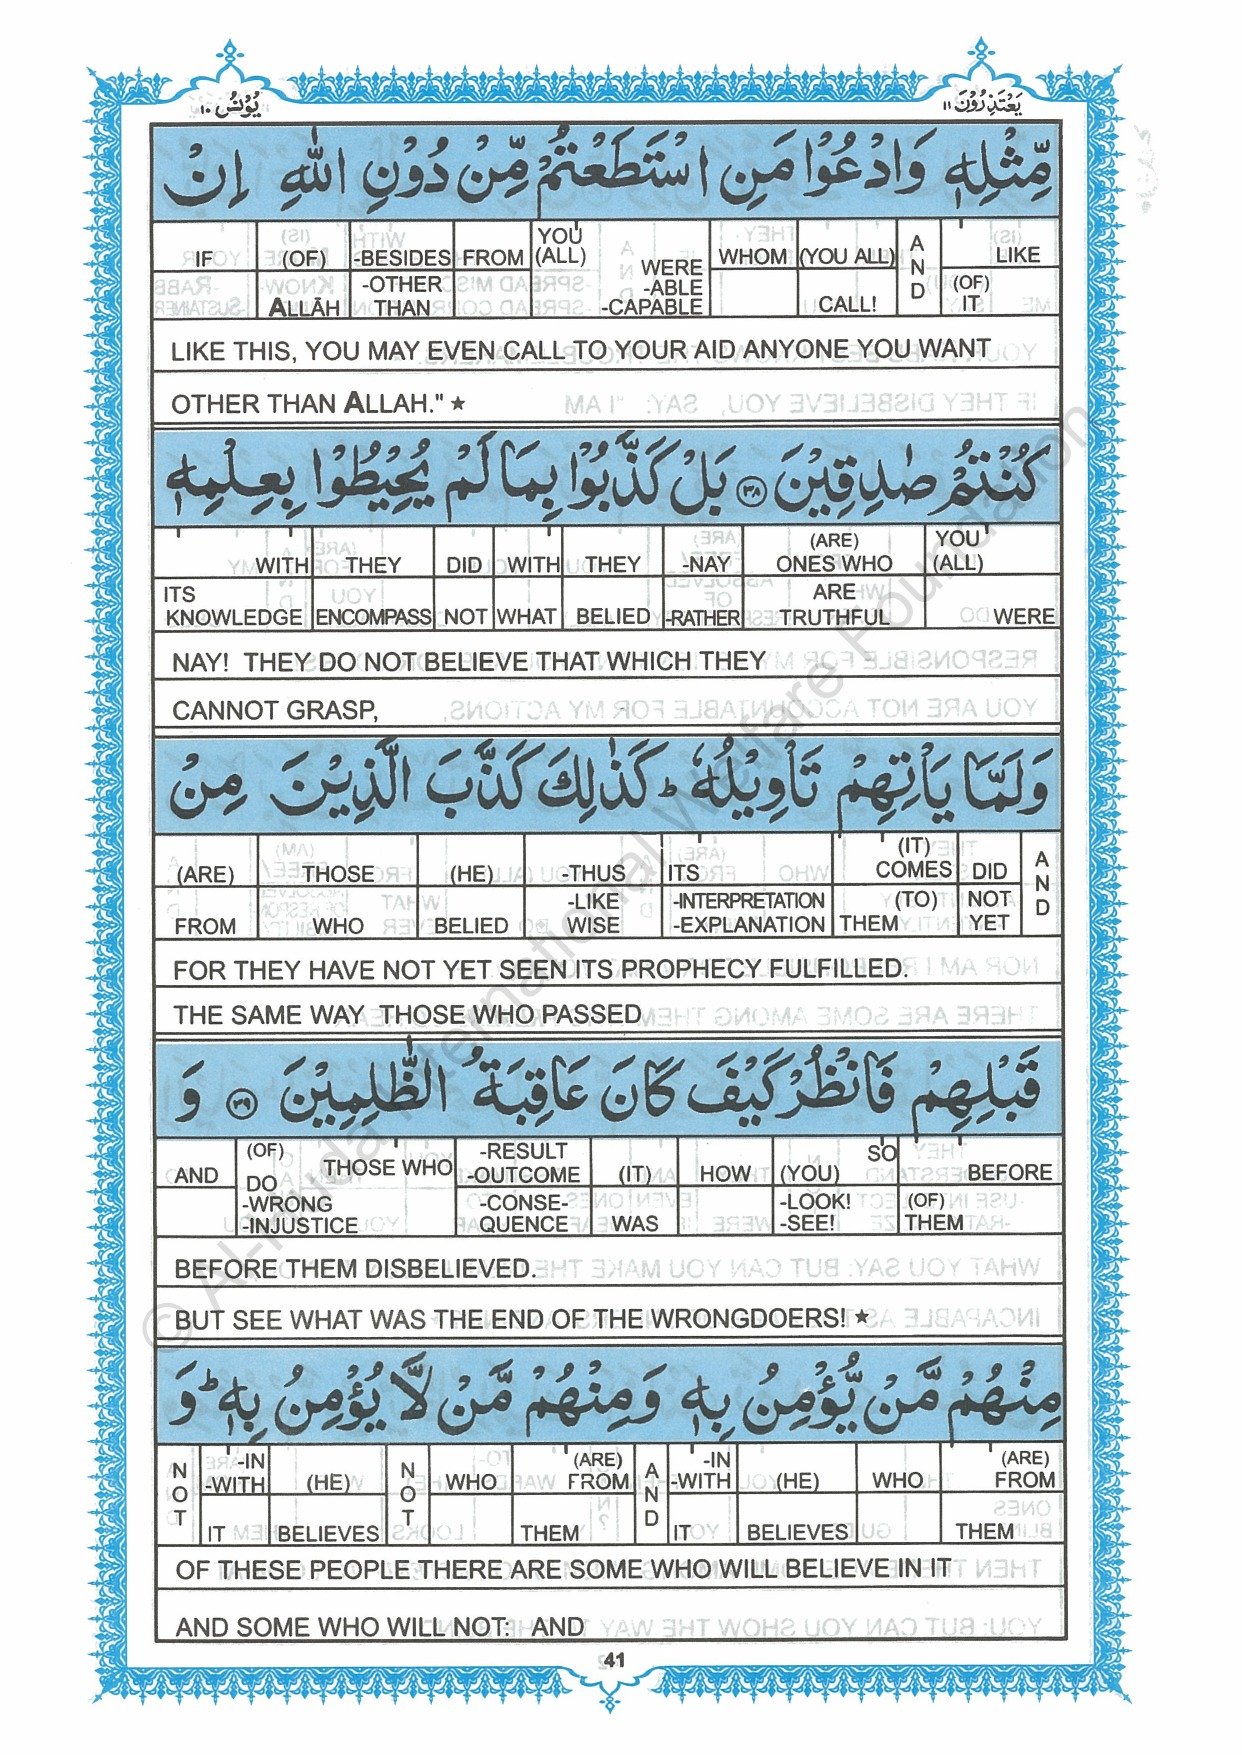 يَعْتَذِرُوْنَ ١١
يُوْنُسُ ١٠
مِّثْلِهٖ وَادْعُوْا مَنِ اسْتَطَعْتُمْ مِّنْ دُوْنِ اللّٰهِ اِنْ
IF (OF) -BESIDES FROM YOU (ALL) WERE WHOM (YOU ALL) AND LIKE
ALLĀH -OTHER THAN -ABLE -CAPABLE CALL! (OF) IT
LIKE THIS, YOU MAY EVEN CALL TO YOUR AID ANYONE YOU WANT
OTHER THAN ALLAH." ★
كُنْتُمْ صٰدِقِيْنَ ﴿٣٨﴾ بَلْ كَذَّبُوْا بِمَا لَمْ يُحِيْطُوْا بِعِلْمِهٖ
WITH THEY DID WITH THEY -NAY (ARE) ONES WHO YOU (ALL)
ITS KNOWLEDGE ENCOMPASS NOT WHAT BELIED -RATHER ARE TRUTHFUL WERE
NAY! THEY DO NOT BELIEVE THAT WHICH THEY
CANNOT GRASP,
وَلَمَّا يَاْتِهِمْ تَاْوِيْلُهٗ ؕ كَذٰلِكَ كَذَّبَ الَّذِيْنَ مِنْ
(ARE) THOSE (HE) -THUS ITS (IT) COMES DID AND
FROM WHO BELIED -LIKE WISE -INTERPRETATION -EXPLANATION THEM (TO) NOT YET
FOR THEY HAVE NOT YET SEEN ITS PROPHECY FULFILLED.
THE SAME WAY THOSE WHO PASSED
قَبْلِهِمْ فَانْظُرْ كَيْفَ كَانَ عَاقِبَةُ الظّٰلِمِيْنَ ﴿٣٩﴾ وَ
AND (OF) THOSE WHO -RESULT -OUTCOME (IT) HOW (YOU) SO BEFORE
DO -WRONG -INJUSTICE -CONSE-QUENCE WAS -LOOK! -SEE! (OF) THEM
BEFORE THEM DISBELIEVED.
BUT SEE WHAT WAS THE END OF THE WRONGDOERS! ★
مِنْهُمْ مَّنْ يُّؤْمِنُ بِهٖ وَمِنْهُمْ مَّنْ لَّا يُؤْمِنُ بِهٖ ؕ وَ
NOT -IN -WITH (HE) NOT WHO (ARE) FROM AND -IN -WITH (HE) WHO (ARE) FROM
IT BELIEVES THEM IT BELIEVES THEM
OF THESE PEOPLE THERE ARE SOME WHO WILL BELIEVE IN IT
AND SOME WHO WILL NOT: AND
41
© Al-Huda International Welfare Foundation